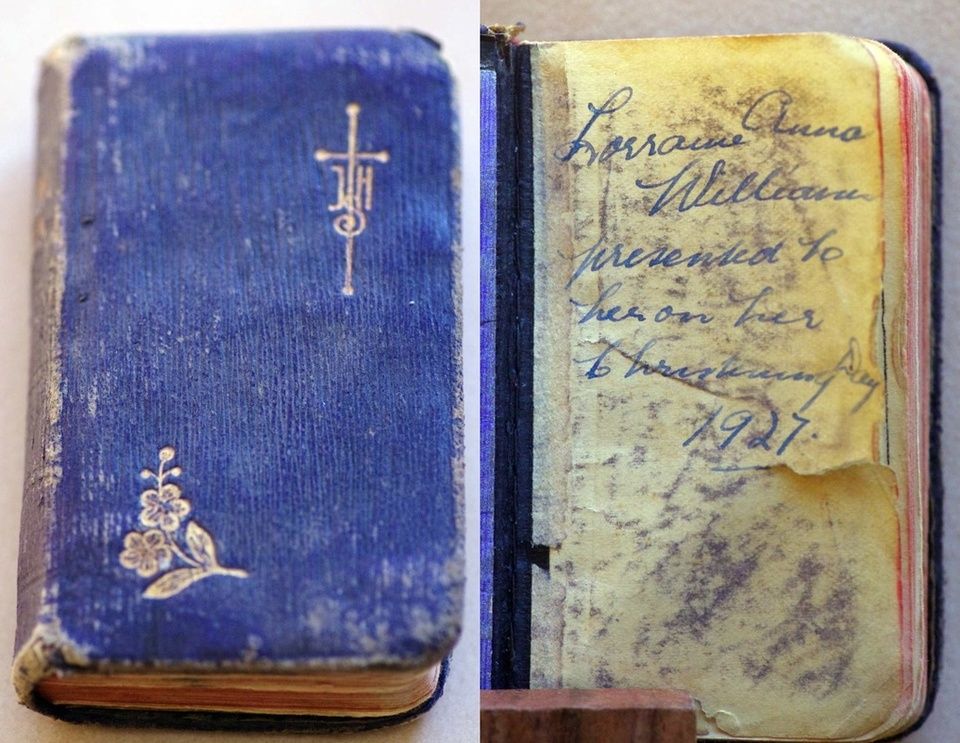 IHS
Lorraine Anna
Williams
presented to
her on her
Christening Day
1927.